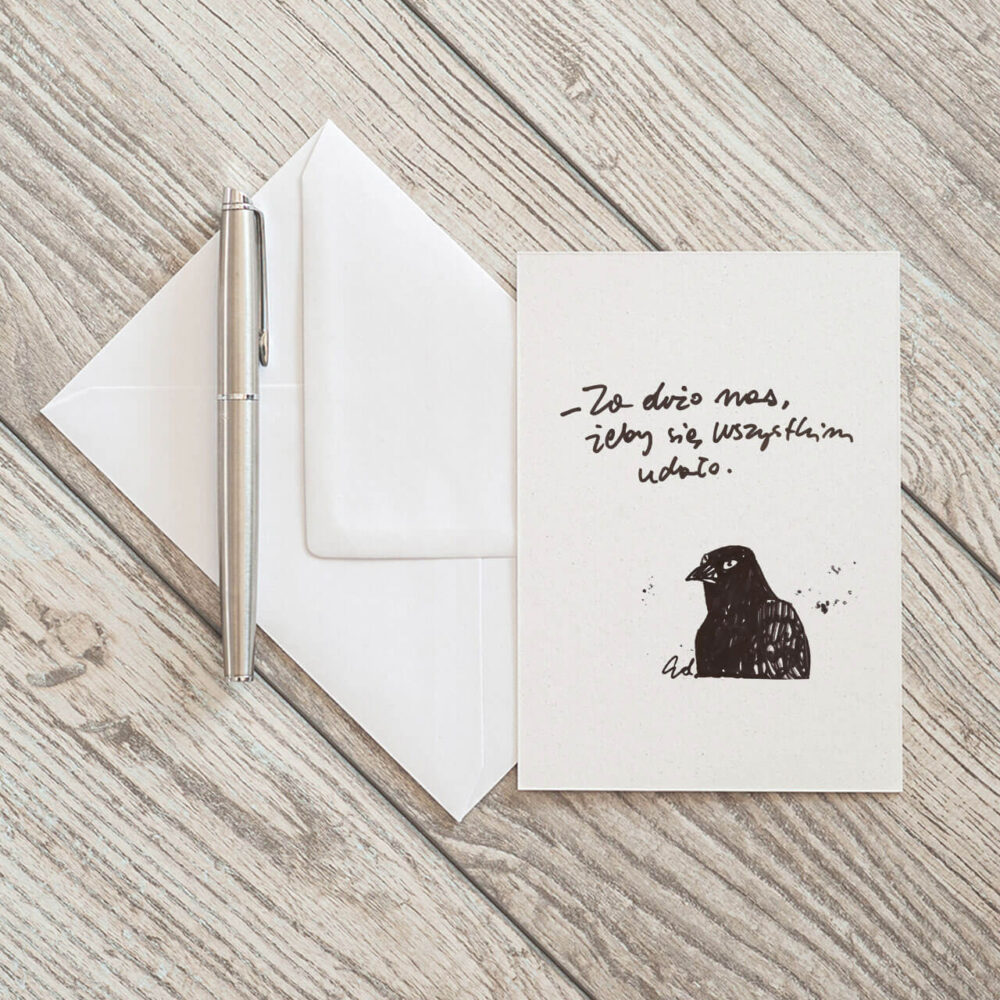 – Za dużo nas,
żeby się wszystkim
udało.